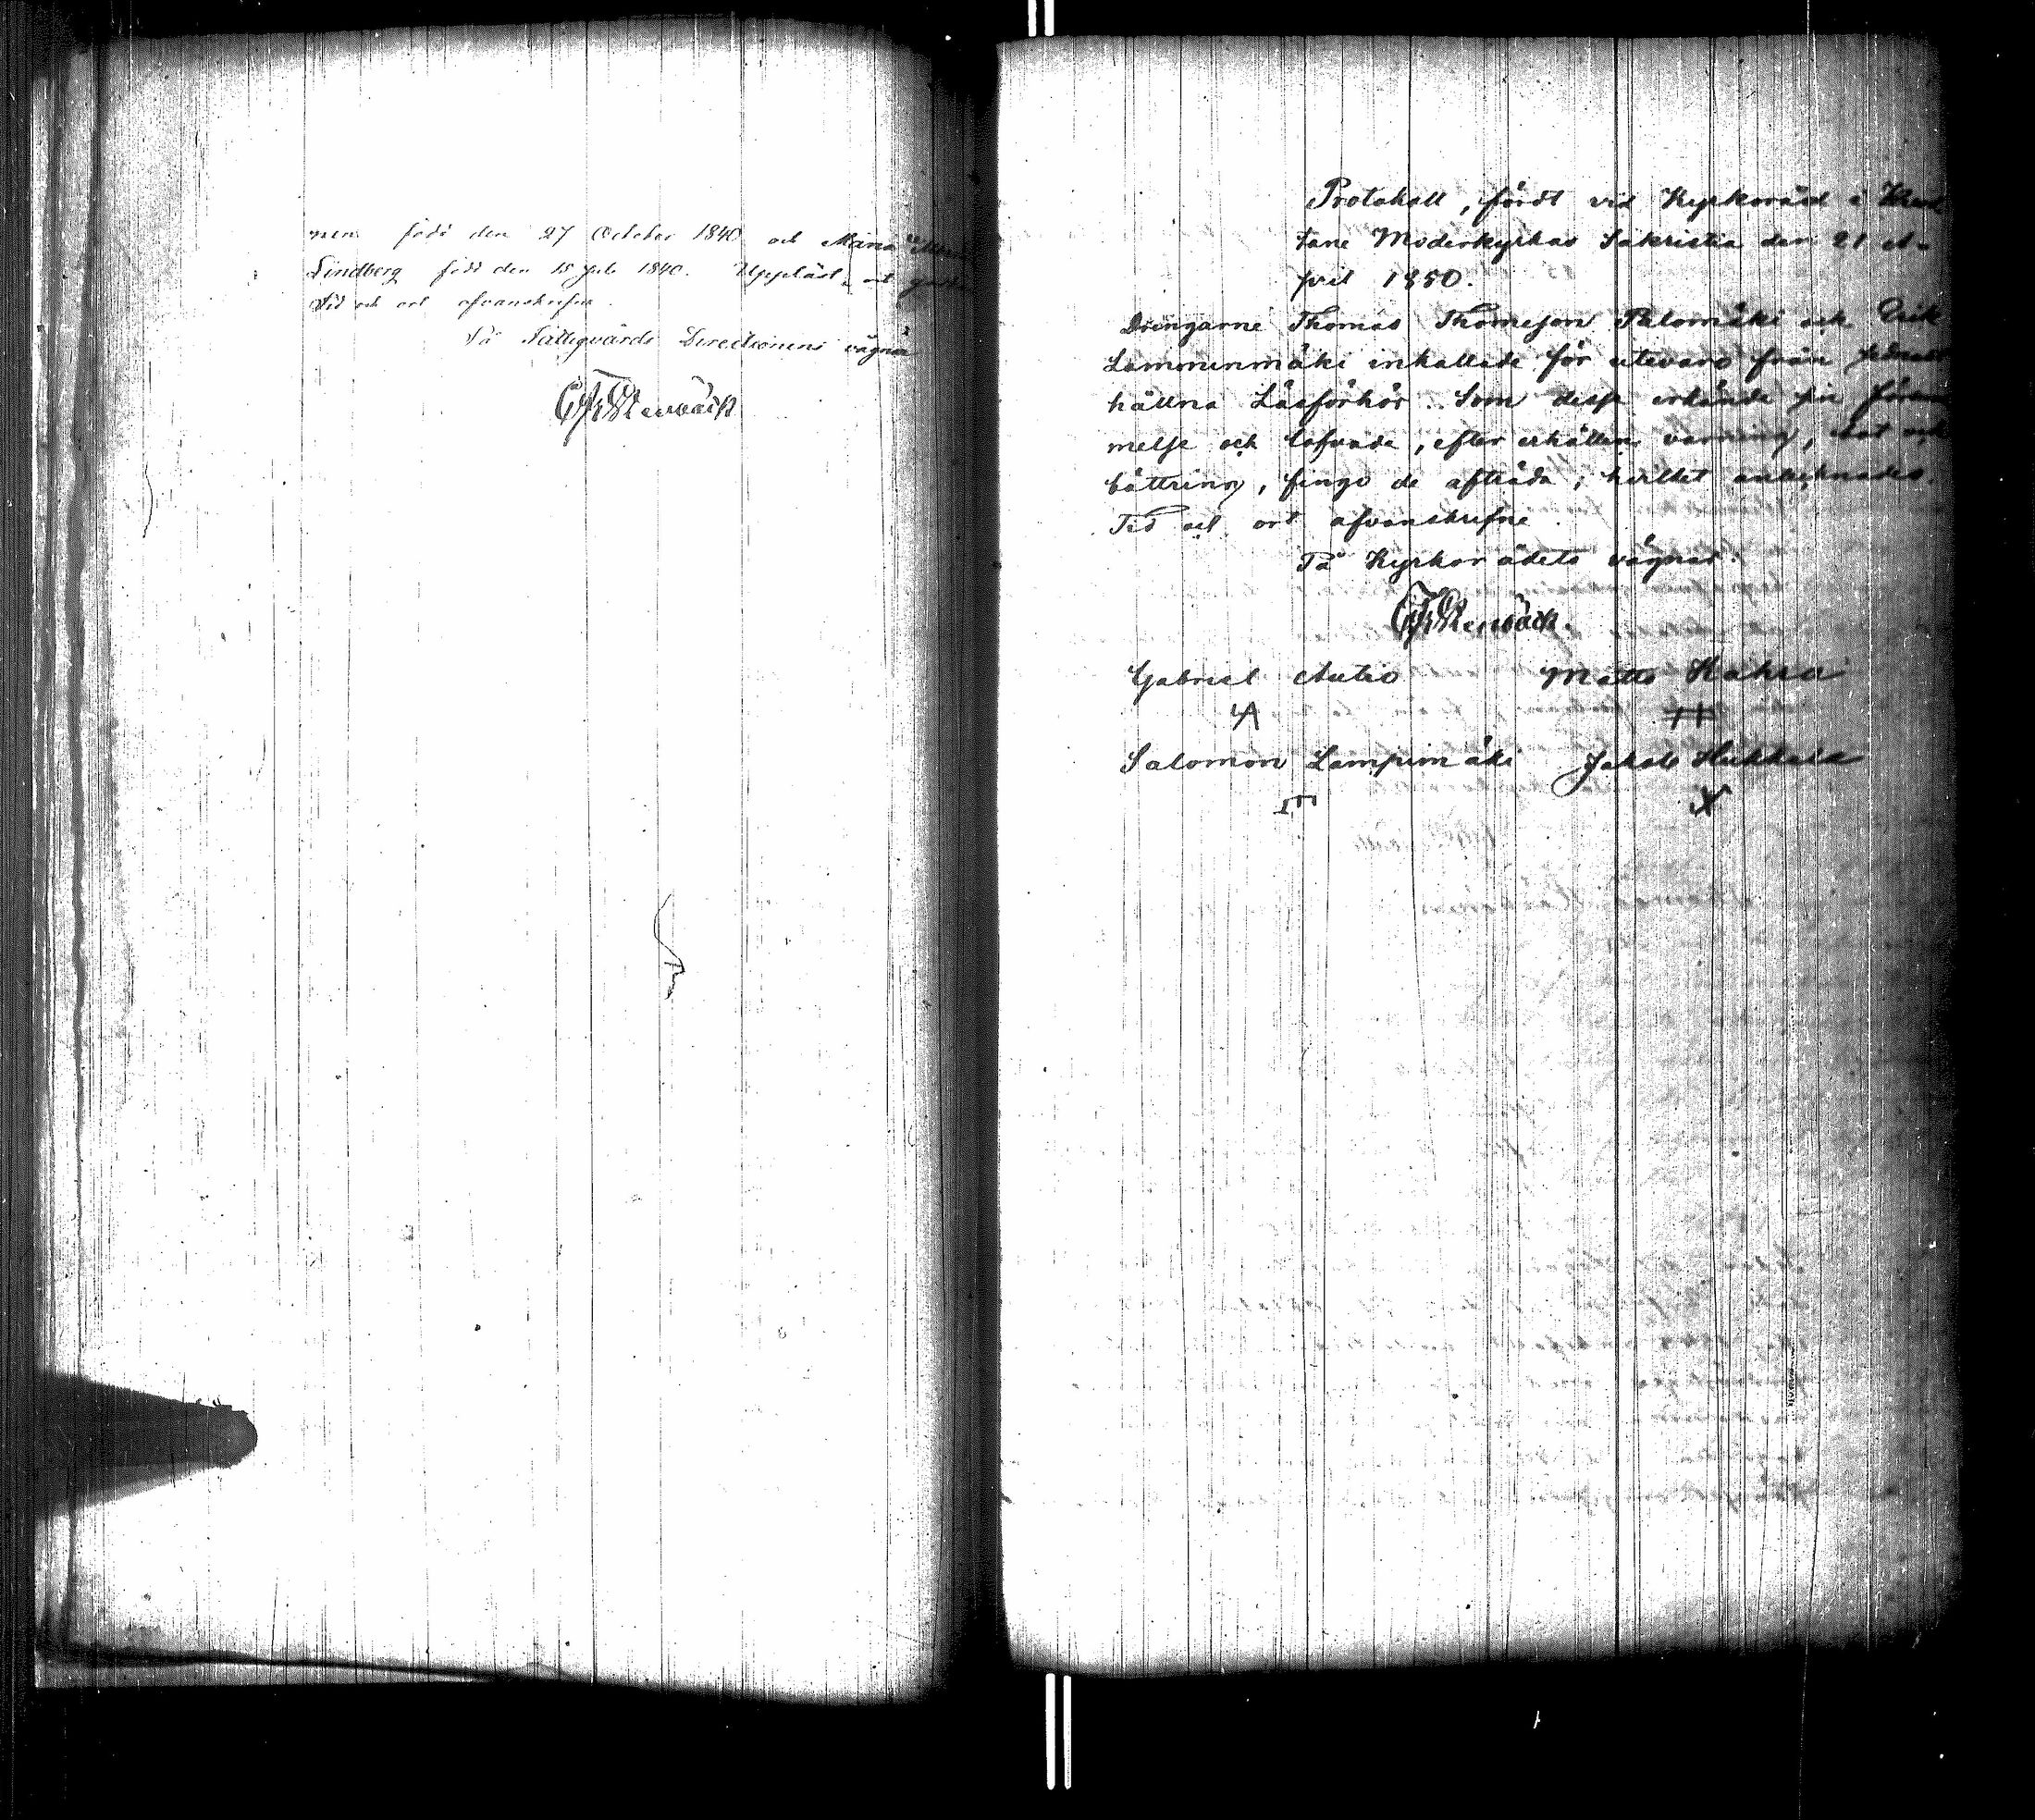 nen född den 27 October 1840 och Maria
Lindberg född den 15 Julii 1840. Uppläst och
Tid och ort ofvanskrefne.
På Fattigvårds Directionens vägnar
Protokoll, fördt vid Kyrkoråd i
tane Moderkyrkas Sakristia den 21 A-
pril 1850.
Drengarne Thomas Thomeson Palomäki och Erik
Lammenmäki inkallade för utevaro från
hållna Läsförhör. Som desse erkände sin försum
melse och lofvade, efter erhållen varning, bot och
bättring, fingo de afträda; hvilket antecknades.
Tid och ort ofvanskrefne.
På Kyrkorådets vägnar:
Gabriel Autio Matts Kahra
Salomon Lampimäki Jakob